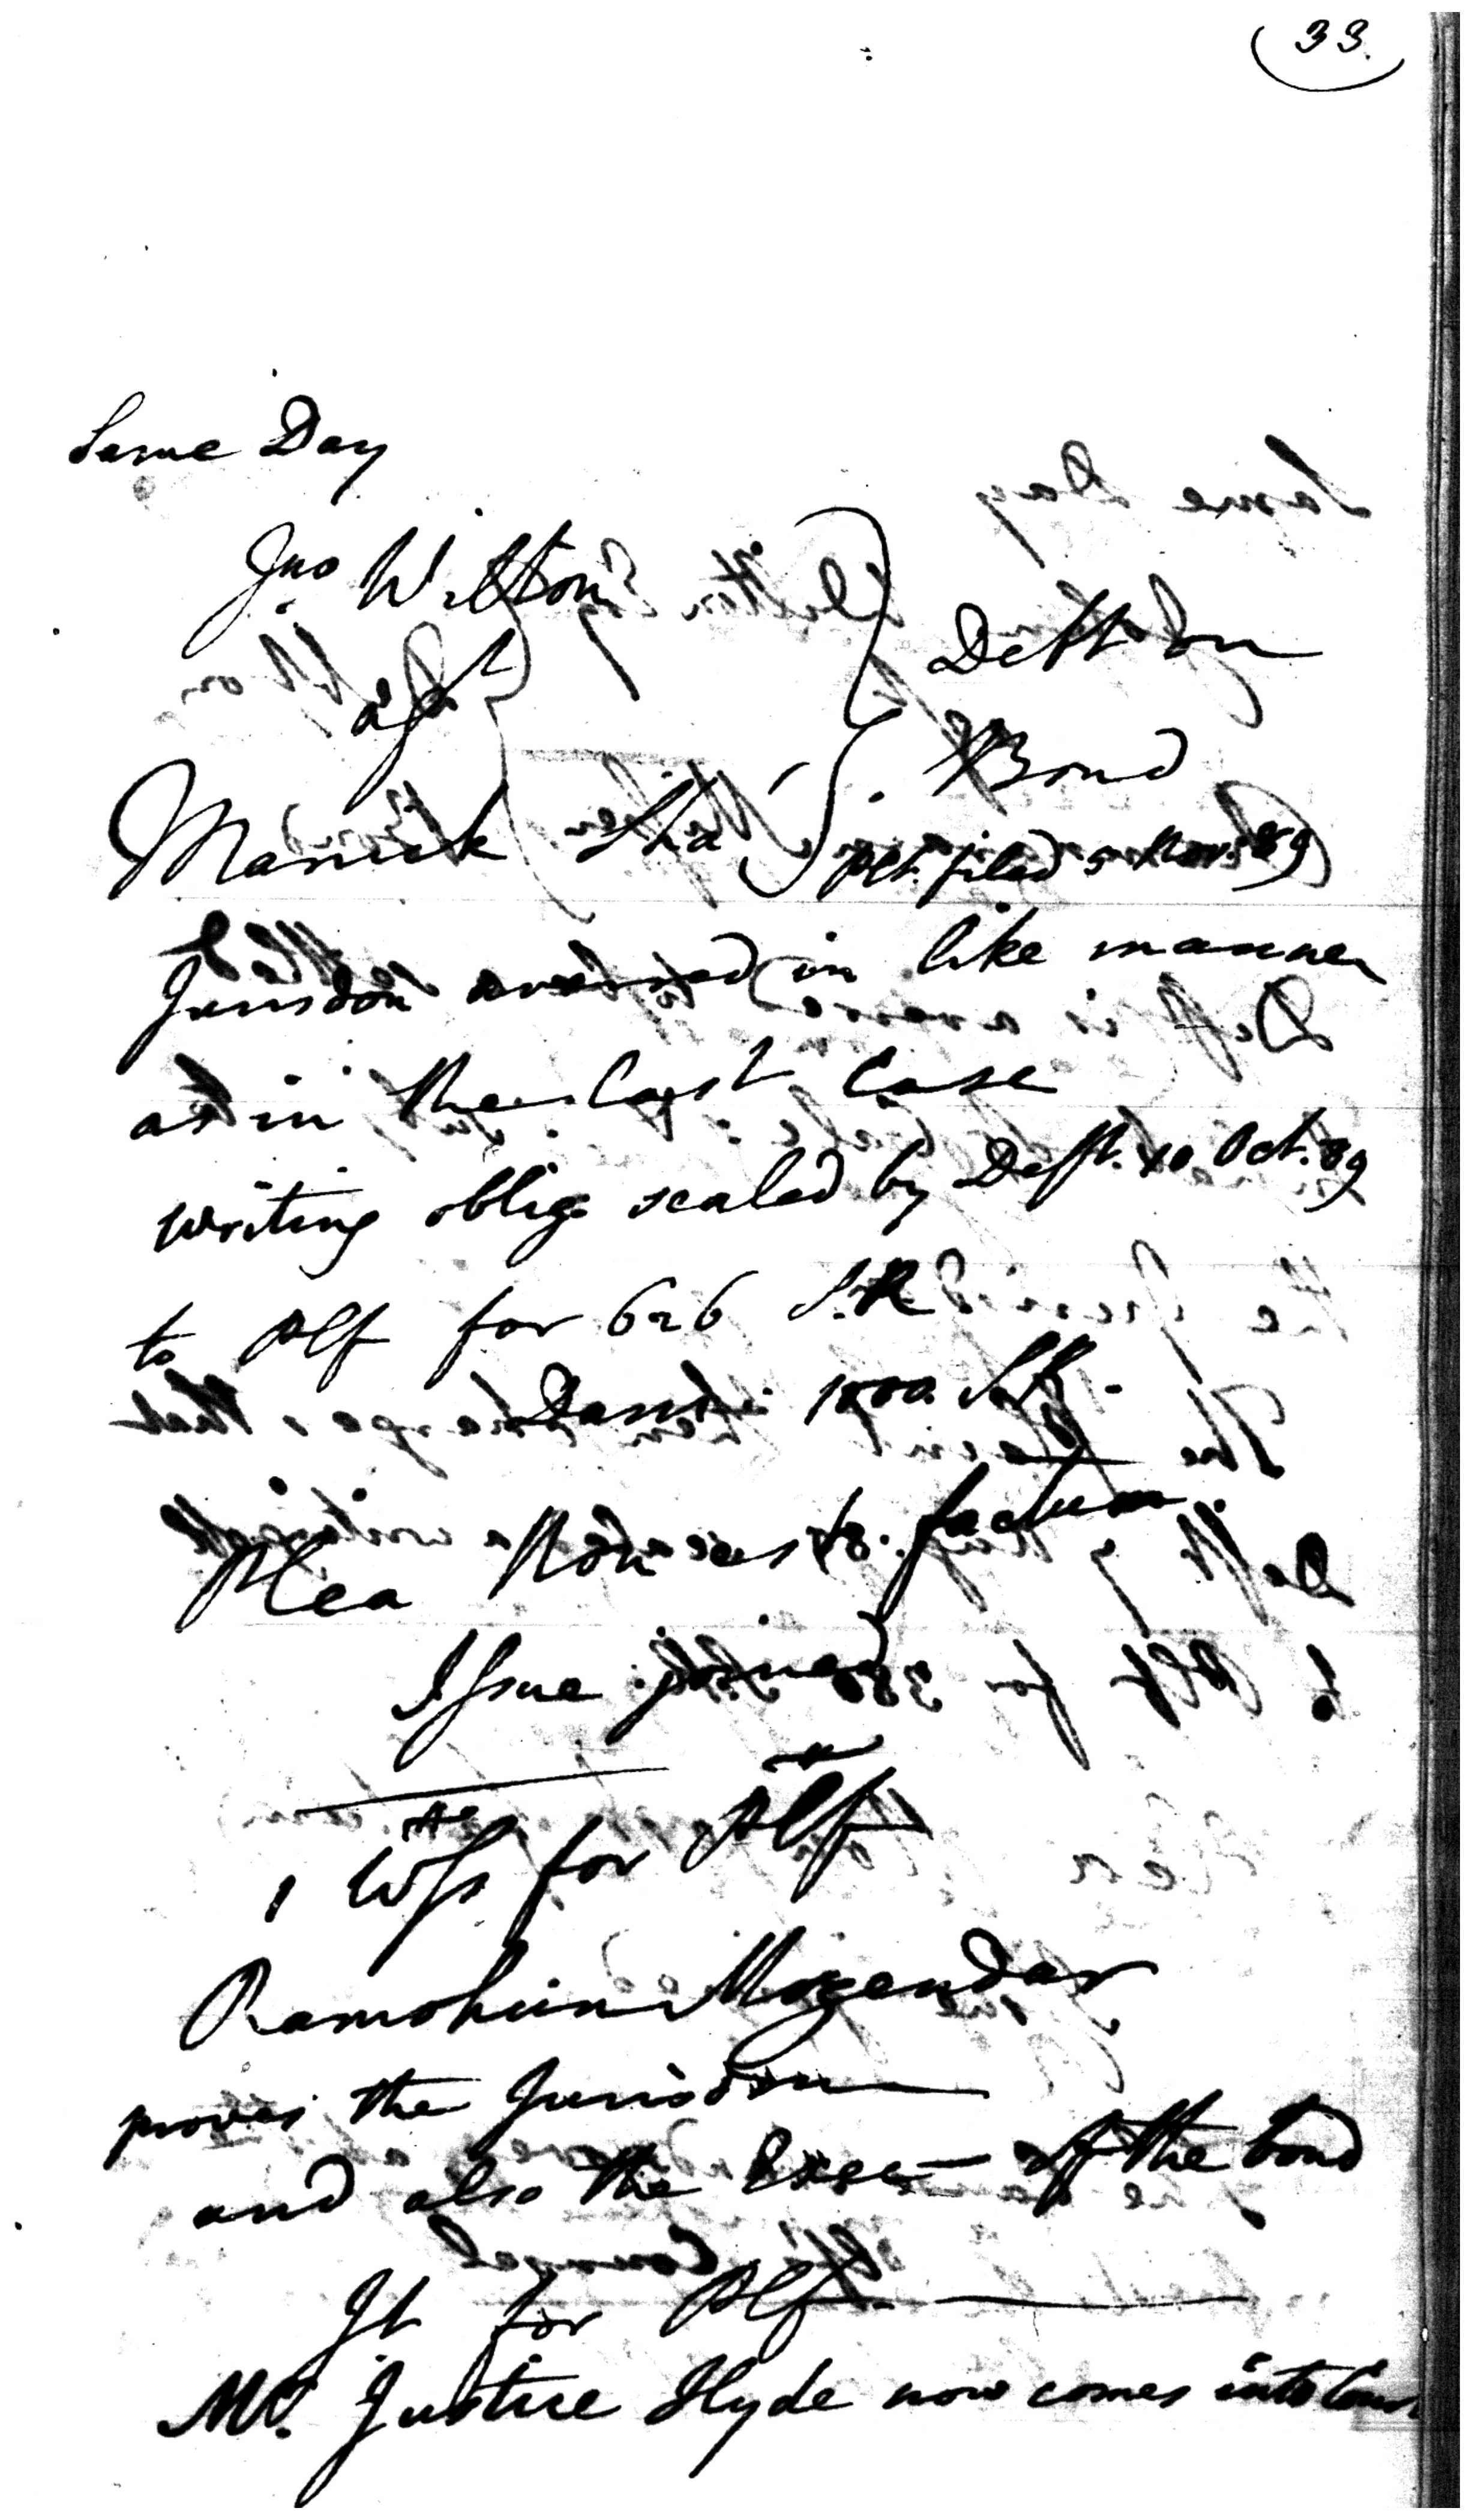 (33.
Same Day
Jno Wilton
agt
Manick Sha
Debt on
Bond
Plt. filed 5 Nov. 89
Jurisdon averred in like manner
as in the last Case
writing oblig. sealed by Deft. 10 Oct. 89
to Plf for 626 S.R
Dam. 1000 S.R.
Plea Non est factum.
Issue joined
1 Wss for Plf
Ramohun Mozendar
proves the Jurisdon
and also the Exec of the bond
Jt for Plf.
Mr. Justice Hyde now comes into Court